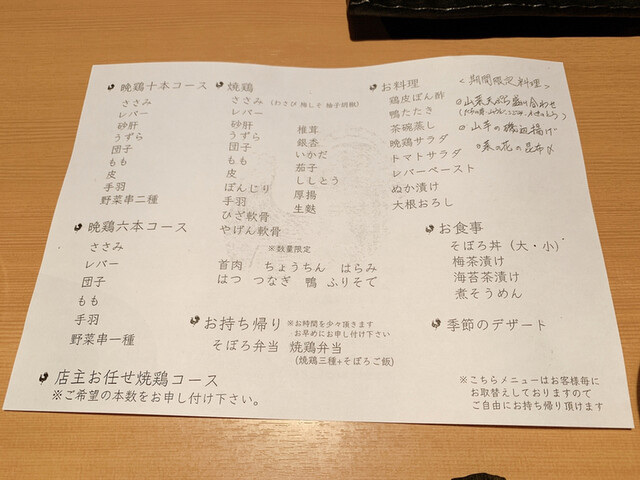 晩鶏十本コース
ささみ
レバー
砂肝
うずら
団子
もも
皮
手羽
野菜串二種
晩鶏六本コース
ささみ
レバー
団子
もも
手羽
野菜串一種
店主お任せ焼鶏コース
※ご希望の本数をお申し付け下さい。
焼鶏
ささみ(わさび 梅しそ 柚子胡椒)
レバー
砂肝
うずら
団子
もも
皮
ぼんじり
手羽
ひざ軟骨
やげん軟骨
椎茸
銀杏
いかだ
茄子
ししとう
厚揚
生麩
※数量限定
首肉 ちょうちん はらみ
はつ つなぎ 鴨 ふりそで
お持ち帰り ※お時間を少々頂きます
お早めにお申し付け下さい
そぼろ弁当 焼鶏弁当
(焼鶏三種+そぼろご飯)
お料理
鶏皮ぽん酢
鴨たたき
茶碗蒸し
晩鶏サラダ
トマトサラダ
レバーペースト
ぬか漬け
大根おろし
<期間限定料理>
山菜天ぷら盛り合わせ
山芋の磯辺揚げ
菜の花の昆布〆
お食事
そぼろ丼(大・小)
梅茶漬け
海苔茶漬け
煮そうめん
季節のデザート
※こちらメニューはお客様毎に
お取替えしておりますので
ご自由にお持ち帰り頂けます